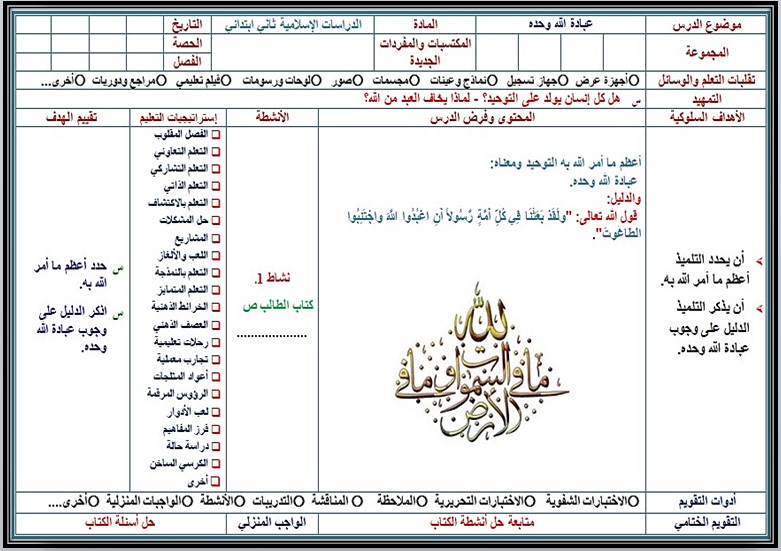 موضوع الدرس
عبادة الله وحده
المادة
الدراسات الإسلامية ثاني ابتدائي
التاريخ
المجموعة
المكتسبات والمفردات
الجديدة
الحصة
الفصل
تقلبات التعلم والوسائل
أجهزة عرض جهاز تسجيل نماذج وعينات مجسمات صور لوحات ورسومات فيلم تعليمي مراجع ودوريات أخرى...
التمهيد
س هل كل إنسان يولد على التوحيد؟ - لماذا يخاف العبد من الله؟
الأهداف السلوكية
المحتوى وفرض الدرس
الأنشطة
إستراتيجيات التعليم
تقييم الهدف
أن يحدد التلميذ
أعظم ما أمر الله به.
أن يذكر التلميذ
الدليل على وجوب
عبادة الله وحده.
أعظم ما أمر الله به التوحيد ومعناه:
عبادة الله وحده.
والدليل:
قول الله تعالى: "وَلَقَدْ بَعَثْنَا فِي كُلِّ أُمَّةٍ رَّسُولاً أَنِ اعْبُدُوا اللَّهَ وَاجْتَنِبُوا
الطَّاغُوتَ".
لله
ما في السموات وما في
الأرض
نشاط 1.
كتاب الطالب ص
....................
الفصل المقلوب
التعلم التعاوني
التعلم التشاركي
التعلم الذاتي
التعلم بالاكتشاف
حل المشكلات
المشاريع
اللعب والألغاز
التعلم بالنمذجة
التعلم المتمايز
الخرائط الذهنية
العصف الذهني
رحلات تعليمية
تجارب معملية
أعواد المثلجات
الرؤوس المرقمة
لعب الأدوار
فرز المفاهيم
دراسة حالة
الكرسي الساخن
أخرى
س حدد أعظم ما أمر
الله به.
س اذكر الدليل على
وجوب عبادة الله
وحده.
أدوات التقويم
الاختبارات الشفوية الاختبارات التحريرية الملاحظة المناقشة التدريبات الأنشطة الواجبات المنزلية أخرى....
التقويم الختامي
متابعة حل أنشطة الكتاب
الواجب المنزلي
حل أسئلة الكتاب